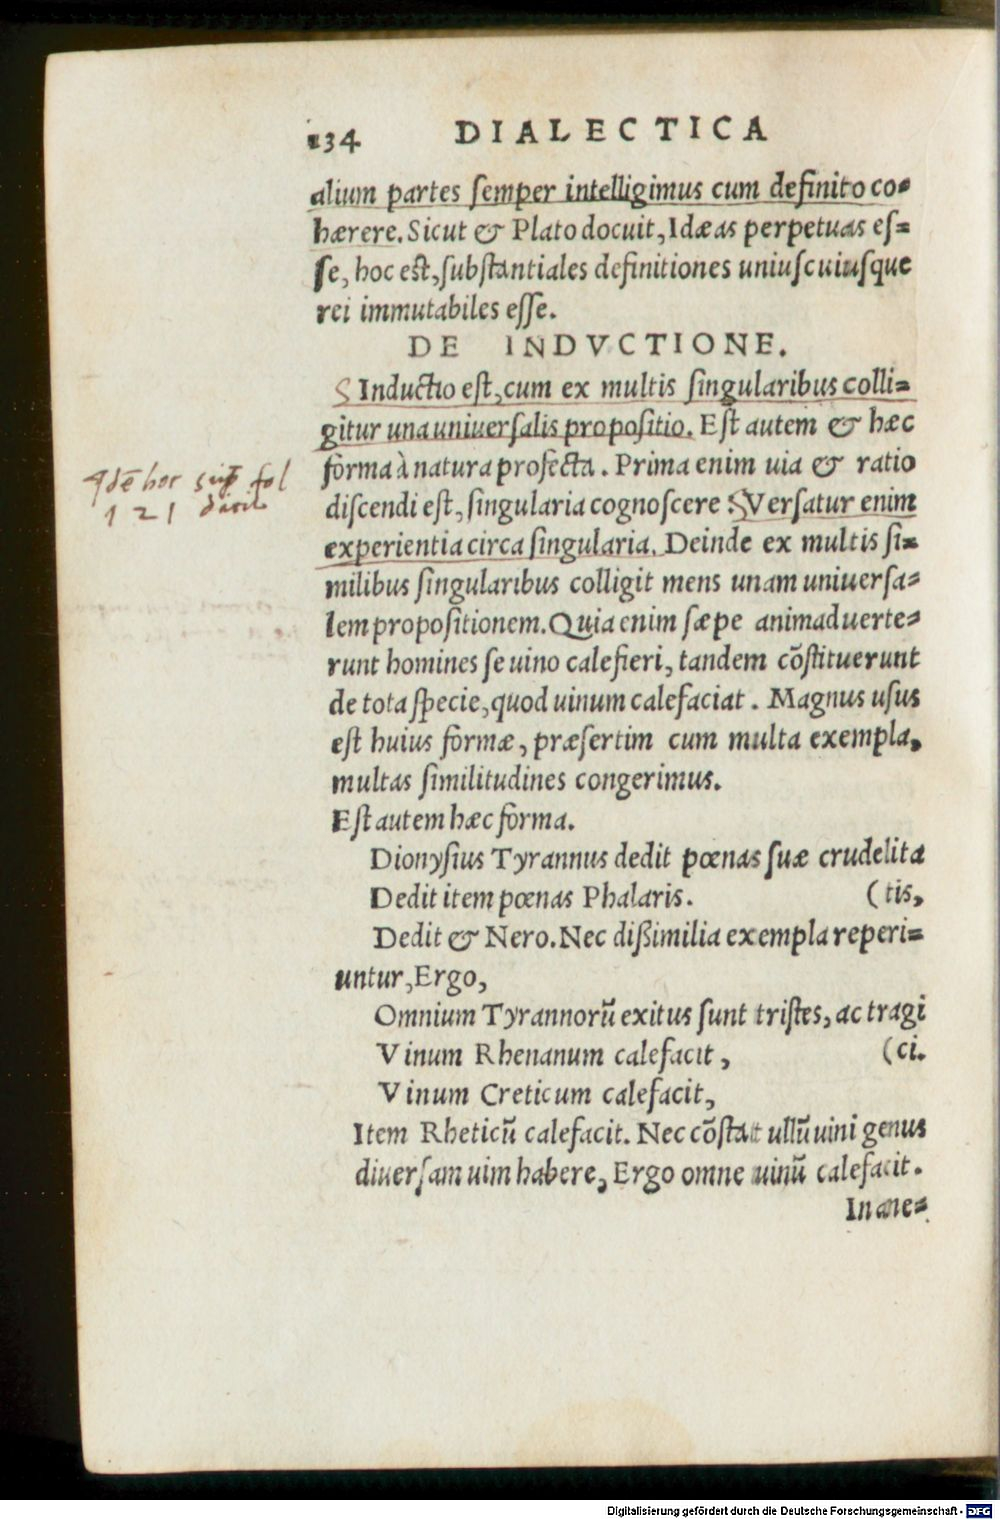 134 DIALECTICA
alium partes semper intelligimus cum definito co=
hærere. Sicut & Plato docuit, Idæas perpetuas es=
se, hoc est, substantiales definitiones uniuscuiusque
rei immutabiles esse.
DE INDVCTIONE.
Inductio est, cum ex multis singularibus colli=
gitur una uniuersalis propositio. Est autem & hæc
forma à natura profecta. Prima enim uia & ratio
discendi est, singularia cognoscere. Versatur enim
experientia circa singularia. Deinde ex multis si=
milibus singularibus colligit mens unam uniuersa=
lem propositionem. Quia enim sæpe animaduerte=
runt homines se uino calefieri, tandem cõstituerunt
de tota specie, quod uinum calefaciat. Magnus usus
est huius formæ, præsertim cum multa exempla,
multas similitudines congerimus.
Est autem hæc forma.
Dionysius Tyrannus dedit pœnas suæ crudelita
Dedit item pœnas Phalaris. (tis,
Dedit & Nero. Nec dißimilia exempla reperi=
untur, Ergo,
Omnium Tyrannorũ exitus sunt tristes, ac tragi
Vinum Rhenanum calefacit, (ci.
Vinum Creticum calefacit,
Item Rheticũ calefacit. Nec cõstat ullũ uini genus
diuersam uim habere, Ergo omne uinũ calefacit.
In ane=
hoc fol
121
Digitalisierung gefördert durch die Deutsche Forschungsgemeinschaft - DFG